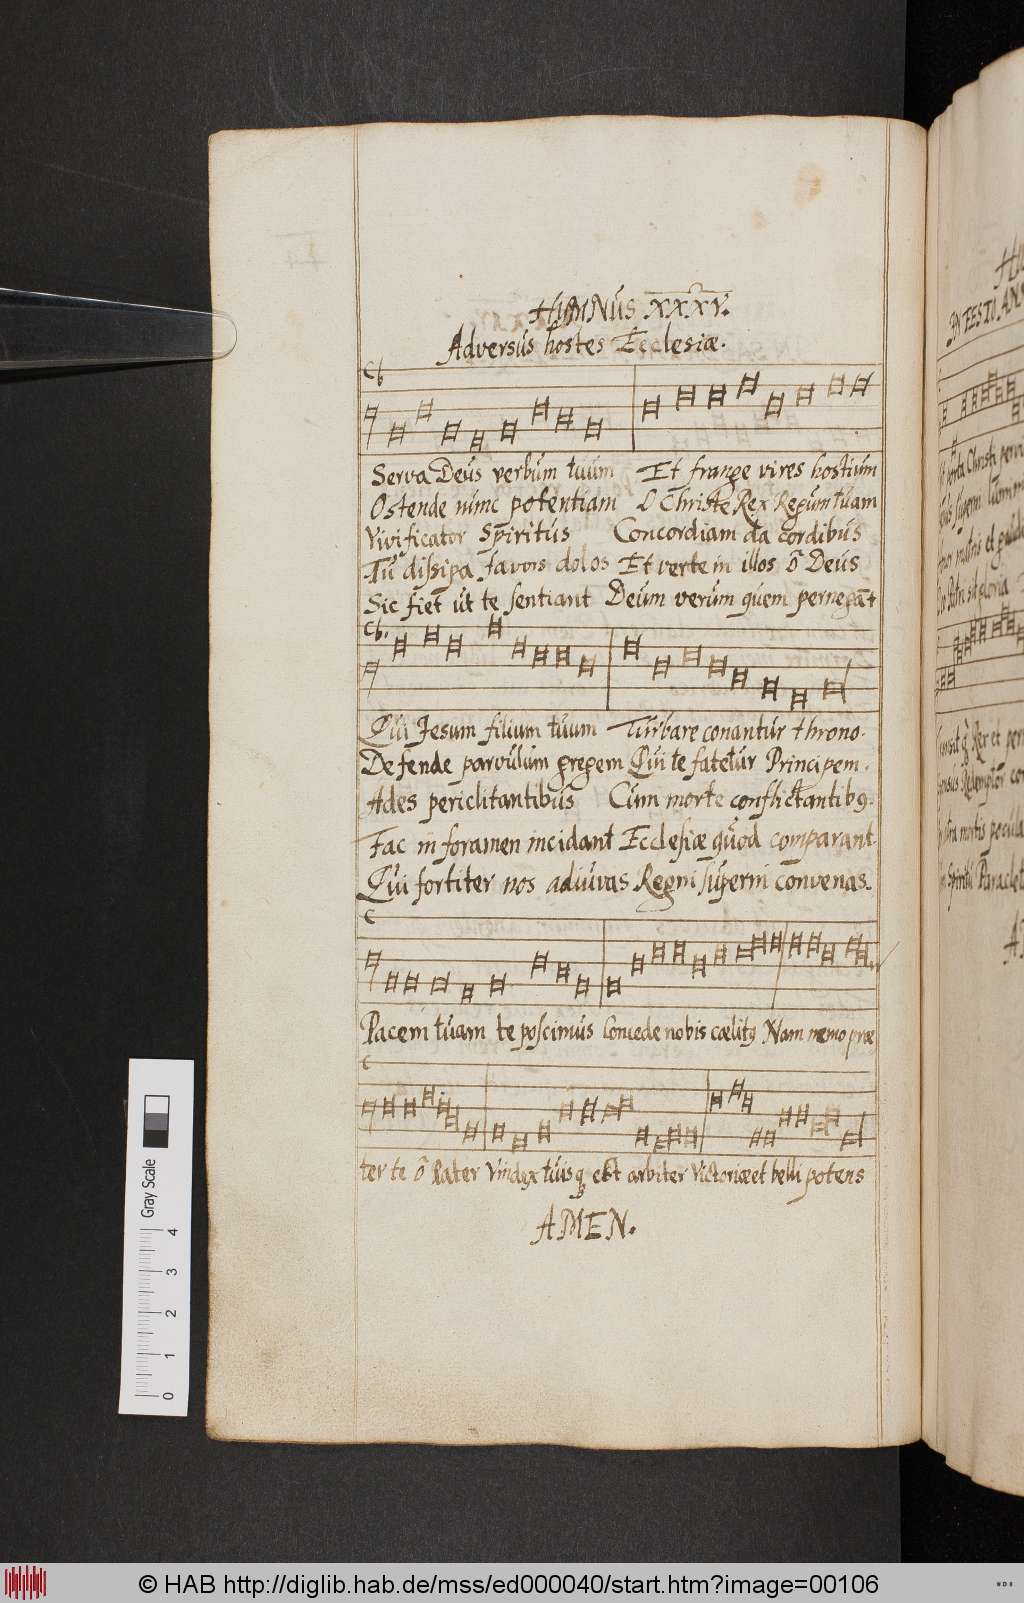 HIMNUS XXXV.
Adversus hostes Ecclesiæ.
Serva Deus verbum tuum Et frange vires hostium
Ostende nunc potentiam O Christe Rex Regum tuam
Vivificator Spiritus Concordiam da cordibus
Tu dissipa dolos Et verte in illos ô Deus
Sic fiet ut te sentiant Deum verum quem pernegāt
Qui Jesum filium tuum Turbare conantur throno.
Defende parvulum gregem Qui te fatetur Principem.
Ades periclitantibus Cum morte conflictantib9.
Fac in foramen incidant Ecclesiæ quod comparant.
Qui fortiter nos adiuvas Regni superni convenas.
Pacem tuam te poscimus Concede nobis cælitq Nam nemo præ
ter te ô Pater Vindex tuisq est arbiter Victoriæ et belli potens
AMEN.
Gray Scale
0 1 2 3 4
© HAB http://diglib.hab.de/mss/ed000040/start.htm?image=00106